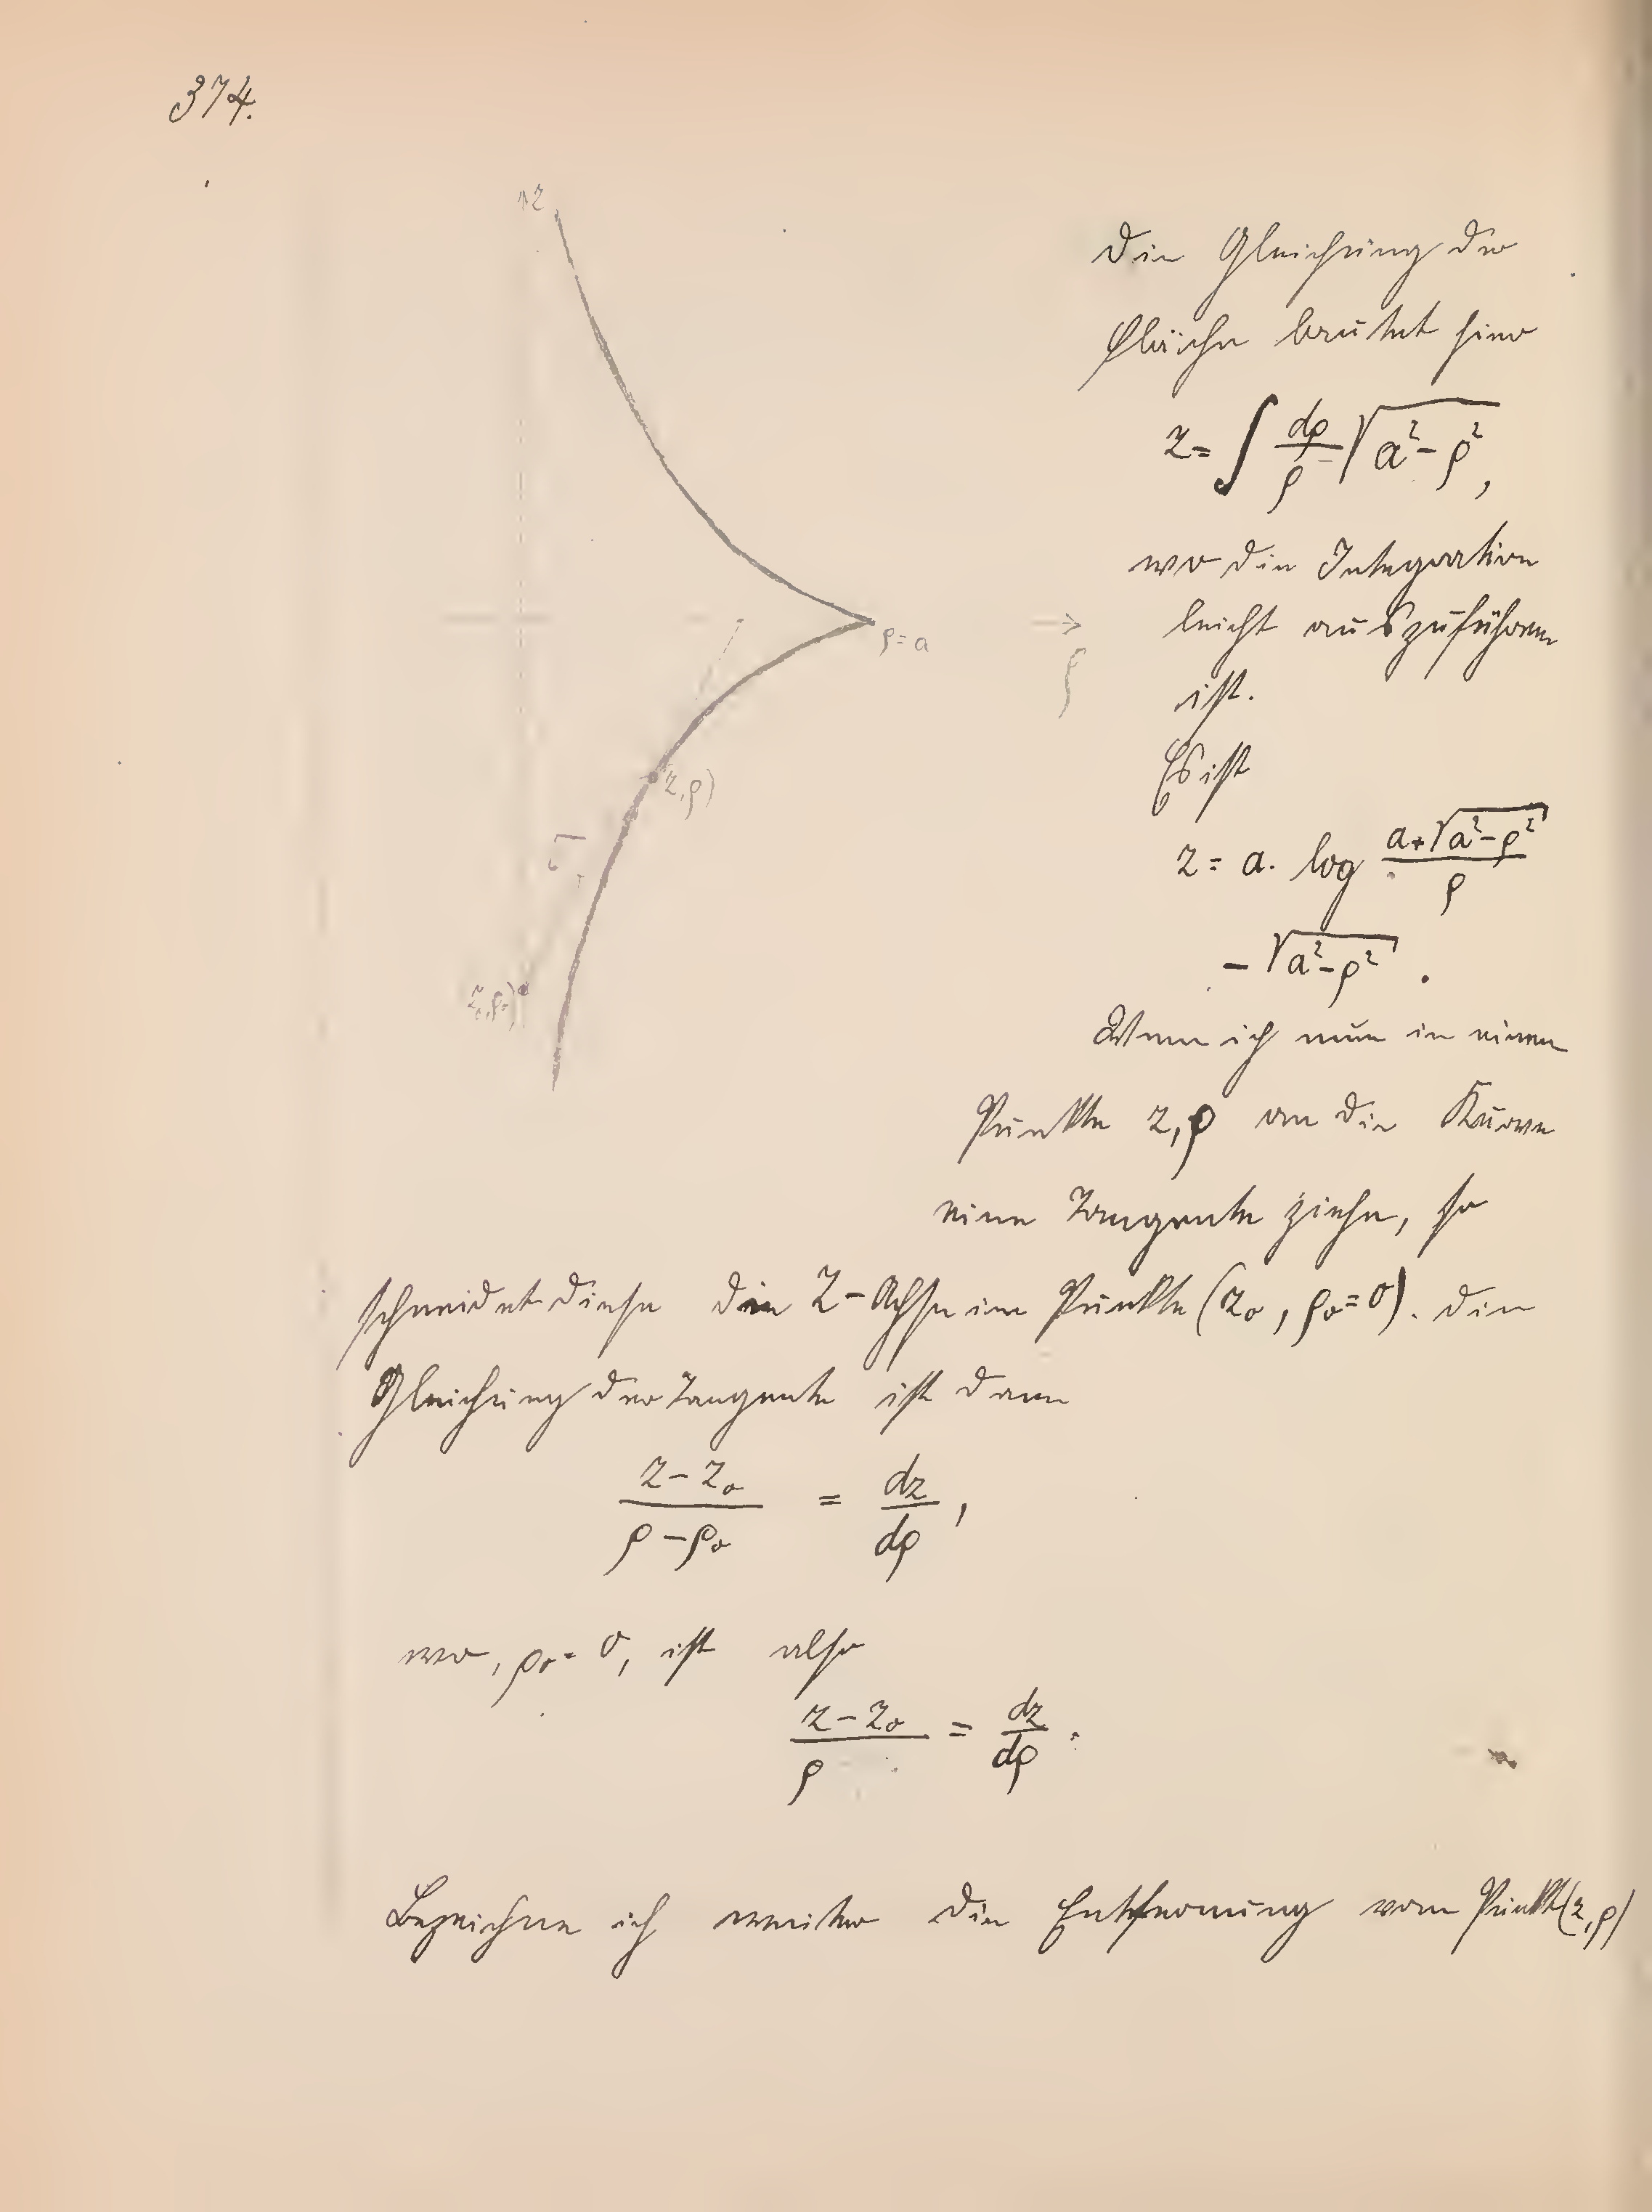 374.
↑z
Die Gleichung der
Fläche lautet hier
z = ∫ dρ/ρ √(a² - ρ²),
wo die Integration
leicht auszuführen
ist.
→
ρ
ρ = a
Es ist
(z, ρ)
z = a. log (a + √(a² - ρ²))/ρ
- √(a² - ρ²) .
(z₀, ρ₀)
Wenn ich nun in einem
Punkte z, ρ an die Kurve
eine Tangente ziehe, so
schneidet diese die Z-Achse im Punkte (z₀, ρ₀ = 0). Die
Gleichung der Tangente ist dann
(z - z₀)/(ρ - ρ₀) = dz/dρ,
wo, ρ₀ = 0, ist also
(z - z₀)/ρ = dz/dρ.
Bezeichne ich weiter die Entfernung vom Punkt (z, ρ)